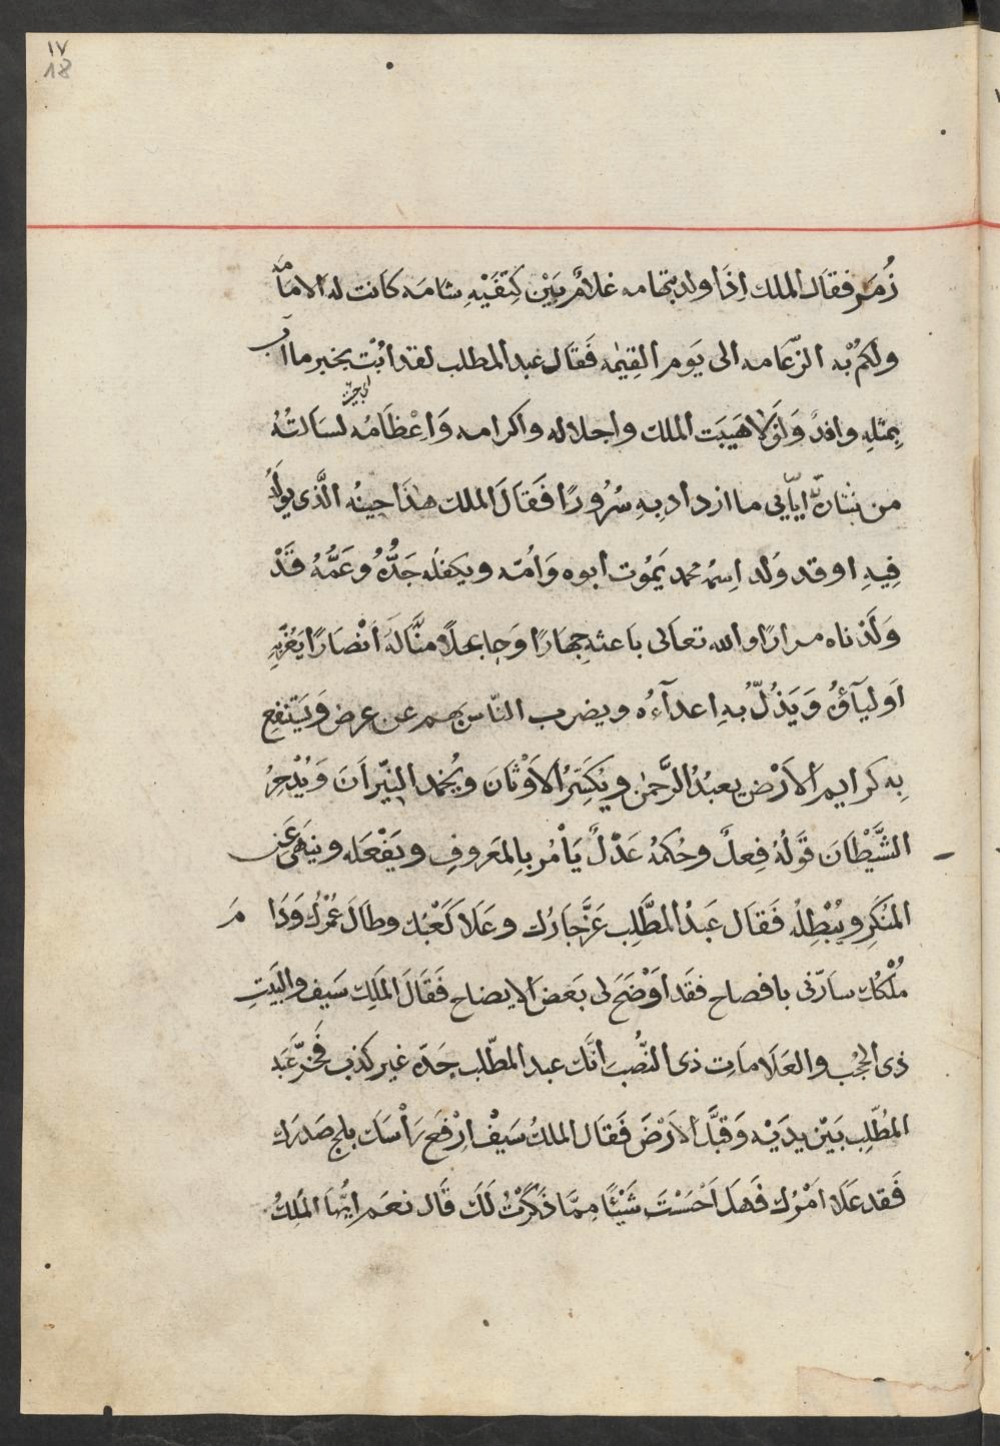 ١٧
18
زُمَر فقال الملك اِذَا ولد بتهامه غلامٌ بَيْن كِتفَيْهِ شامَه كانت له الامامه
ولكم به الزّعامه الى يَوم القِيٰمه فَقَال عبد المطلب لقد ابْت بخبر ما آب
بِمثلِهِ وافدٌ وَلَوْلا هَيبَت الملك واجلاله واكرامه وَاعْظَامُه لسَالتهُ
من ايّاىى ما ازداد بِهِ سُرُورًا فَقَالَ الملك هٰذَا حِينُه الَّذى يولَدُ
فِيهِ او قد وَلد اِسمُه محمد يَمُوت ابوه وَامّه ويكفلُه جَدُّهُ وعَمُّهُ قَدْ
وَلَدْناه مرارًا والله تعالى بَاعثه جِهَارًا وَجاعلاً منَّا لَهُ اَنْصَارًا يَعُزّبِهِ
اَوليَآؤُ وَيَذُلّ بهِ اعدآءُه ويضرب النّاس بهم عن عرض وَيَنتفع
بِه كرايم الاَرْض يعبدُ الرَّحمٰن ويُكَسّرُ الاَوْثَانَ ويُخمد النِيّرانَ وَيُدْحِرُ
الشَّيْطَانَ قَولُهُ فِعلٌ وحُكمُهُ عَدْلٌ يَأْمُر بِالمَعروفِ ويَفْعَله وينهَى عَن
المنكَرِ ويُبْطِلُه فَقَال عَبدُ المطَّلِب عَزَّ جَارُك وعَلَا كَعْبُك وطالَ عُمْرُك وَدَا مَ
مُلْكُك سارّنى بافصاح فقَد اَوْضَحَ لى بَعضَ الايضاح فَقَالَ المَلِك سَيف والبَيَتِ
ذى الحُجُب والعَلَامَاتِ ذى النّصُب انّك عبد المطّلب جَدّه غير كذب فَخرّ عَبد
المُطّلِب بَيْن يدَيْه وَقبَّل الاَرْضَ فَقَال الملكُ سَيْف اِرْفَع رَأْسَك بلج صَدرَك
فَقد عَلَا اَمْرُك فَهَل اَحْسَسْتَ شَيْئًا مِمَّا ذَكَرْتُ لَكَ قَال نعَم اَيُّهَا المَلِكُ